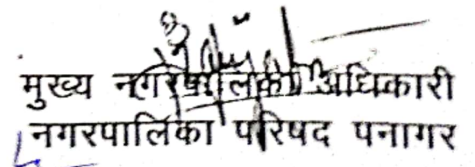 मुख्य नगरपालिका अधिकारी
नगरपालिका परिषद पनागर